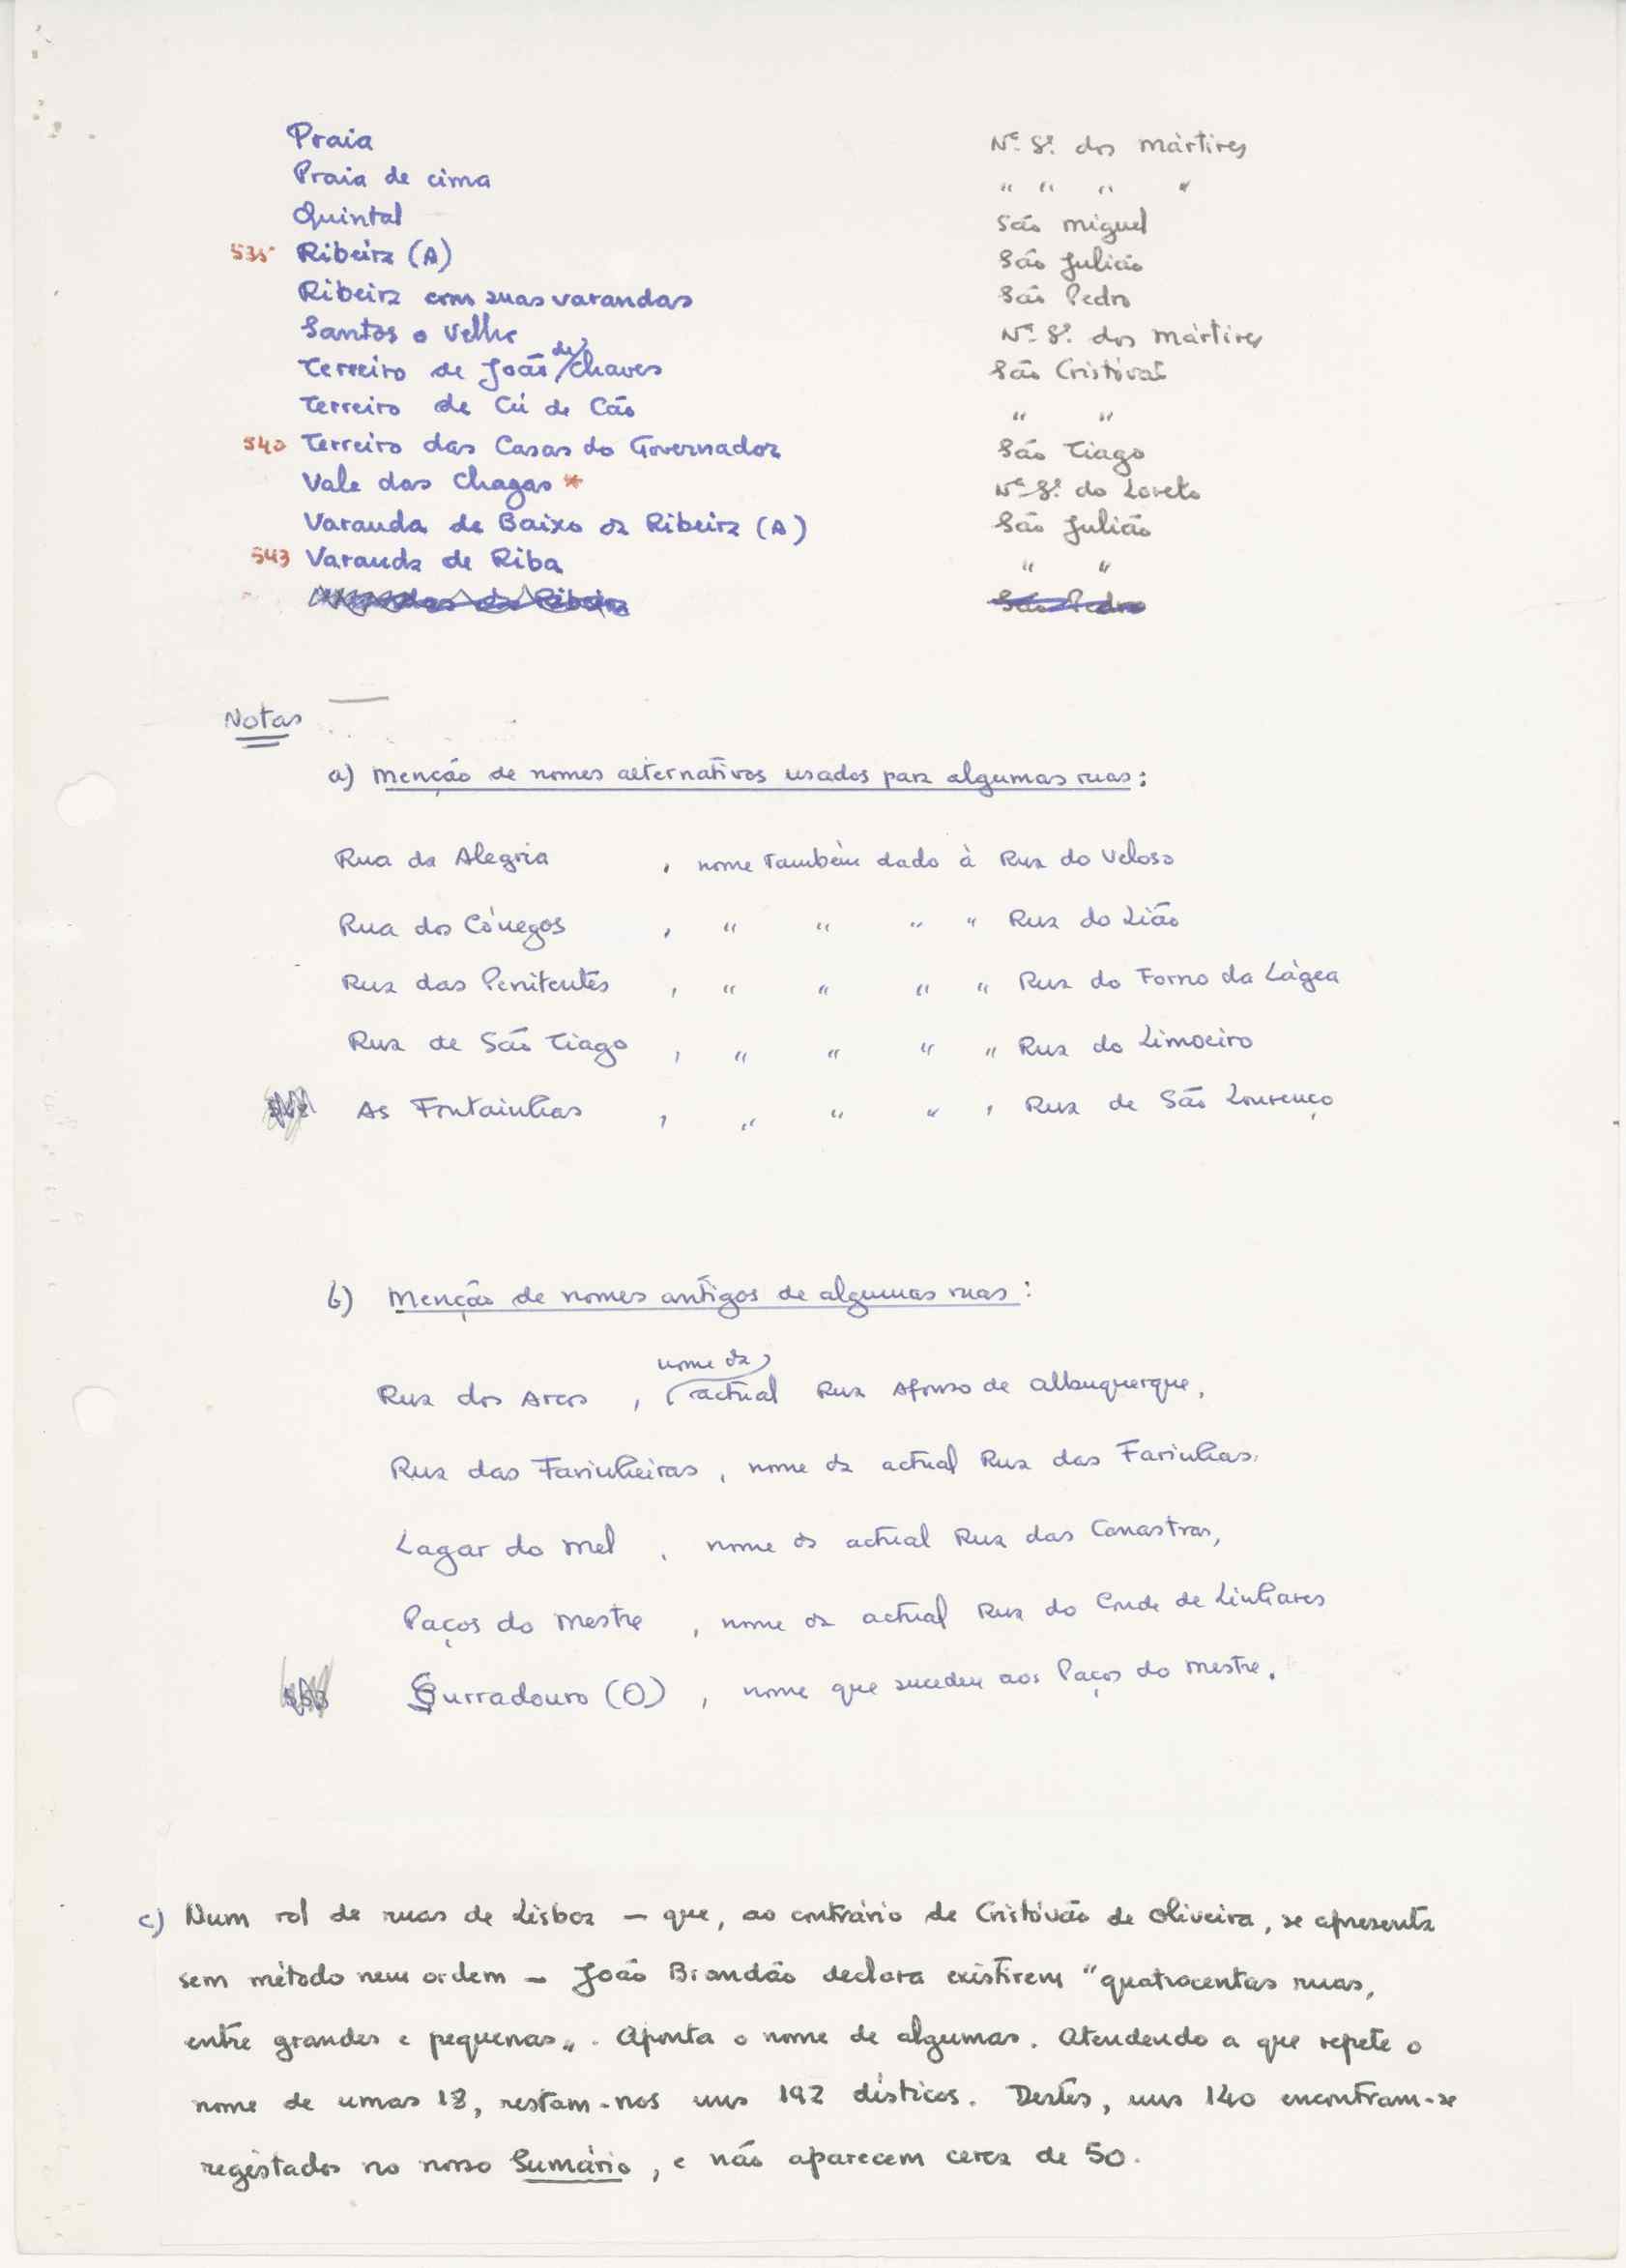 Praia Nª. Sª. dos mártires
Praia de cima " " " "
Quintal São miguel
535 Ribeira (A) São Julião
Ribeira com suas varandas São Pedro
Santos o Velho Nª. Sª. dos mártires
Terreiro de João de Chaves São Cristóvão
Terreiro de Cú de Cão " "
540 Terreiro das Casas do Governador São Tiago
Vale das Chagas * Nª Sª. do Loreto
Varanda de Baixo da Ribeira (A) São Julião
543 Varanda de Riba " "
São Pedro
Notas
a) menção de nomes alternativos usados para algumas ruas:
Rua da Alegria , nome também dado à Rua do Veloso
Rua dos Cónegos , " " " " Rua do Lião
Rua das Penitentes , " " " " Rua do Forno da Lágea
Rua de São Tiago , " " " " Rua do Limoeiro
As Fontainhas , " " " , Rua de São Lourenço
b) menção de nomes antigos de algumas ruas:
Rua dos Arcos , nome da actual Rua Afonso de Albuquerque,
Rua das Farinheiras , nome da actual Rua das Farinhas.
Lagar do mel , nome da actual Rua das Canastras,
Paços do mestre , nome da actual Rua do Conde de Linhares
Surradouro (O) , nome que sucedeu aos Paços do mestre.
c) Num rol de ruas de Lisboa – que, ao contrário de Cristóvão de Oliveira, se apresenta
sem método nem ordem – João Brandão declara existirem "quatrocentas ruas,
entre grandes e pequenas". Aponta o nome de algumas. Atendendo a que repete o
nome de umas 18, restam-nos uns 192 dísticos. Destes, uns 140 encontram-se
registados no nosso Sumário, e não aparecem cerca de 50.